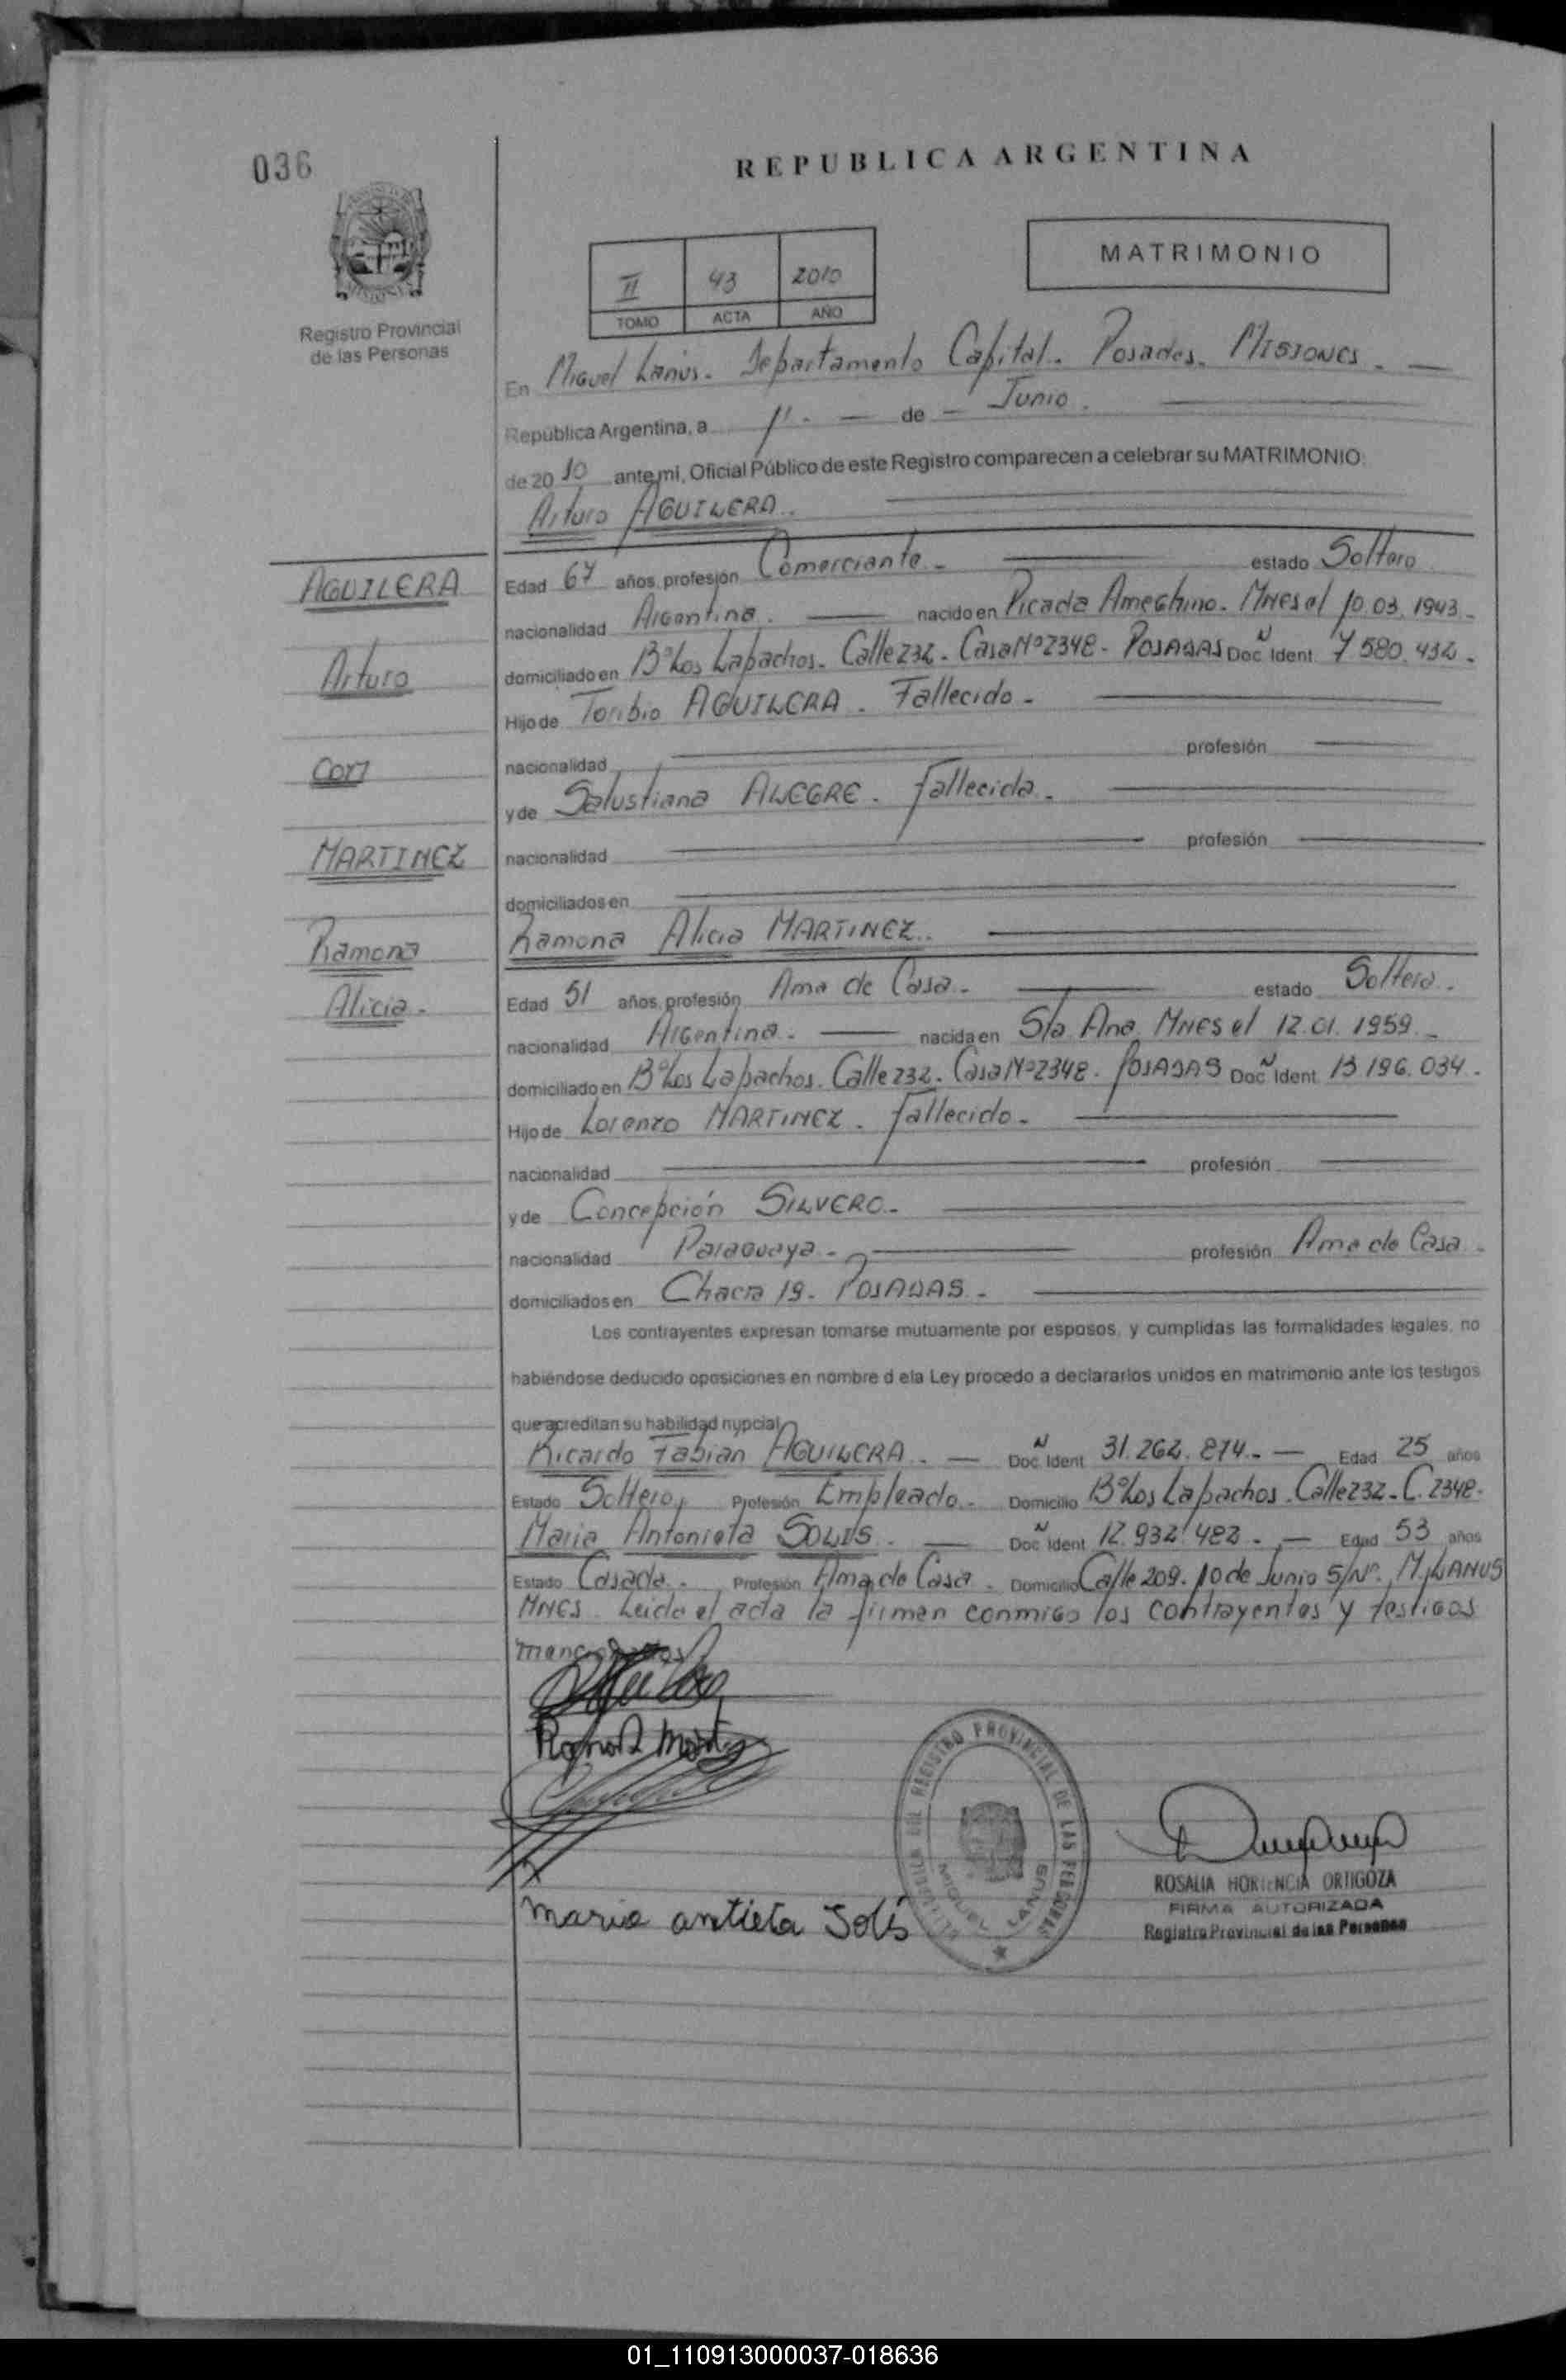 036
REPUBLICA ARGENTINA
MATRIMONIO
II 43 2010
TOMO ACTA AÑO
Registro Provincial
de las Personas
En Miguel Lanús. Departamento Capital. Posadas. Misiones. —
República Argentina, a 1º. — de — Junio.
de 20 10 ante mi, Oficial Público de este Registro comparecen a celebrar su MATRIMONIO:
Arturo AGUILERA.
AGUILERA
Arturo
Con
MARTINEZ
Ramona
Alicia.
Edad 67 años, profesión Comerciante. estado Soltero
nacionalidad Argentina. nacido en Picada Ameghino. Mnes el 10.03.1943.
domiciliado en Bº Los Lapachos. Calle 232. Casa Nº 2348. POSADAS Doc. Ident. N 7.580.432.
Hijo de Toribio AGUILERA. Fallecido.
nacionalidad profesión
y de Salustiana ALEGRE. Fallecida.
nacionalidad profesión
domiciliados en
Ramona Alicia MARTINEZ.
Edad 51 años, profesión Ama de Casa. estado Soltera.
nacionalidad Argentina. nacida en Sta. Ana. Mnes el 12.01.1959.
domiciliado en Bº Los Lapachos. Calle 232. Casa Nº 2348. POSADAS Doc. Ident. N 13.196.034.
Hijo de Lorenzo MARTINEZ. Fallecido.
nacionalidad profesión
y de Concepción SILVERO.
nacionalidad Paraguaya. profesión Ama de Casa.
domiciliados en Chacra 19. POSADAS.
Los contrayentes expresan tomarse mutuamente por esposos, y cumplidas las formalidades legales, no
habiéndose deducido oposiciones en nombre d ela Ley procedo a declararlos unidos en matrimonio ante los testigos
que acreditan su habilidad nupcial
Ricardo Fabian AGUILERA. — Doc. Ident. N 31.262.874. — Edad 25 años
Estado Soltero, Profesión Empleado. Domicilio Bº Los Lapachos. Calle 232. C. 2348.
Maria Antonieta SOLIS. — Doc. Ident. N 12.932.482. — Edad 53 años
Estado Casada. Profesión Ama de Casa. Domicilio Calle 209. 10 de Junio S/Nº. M. LANUS
MNES. Leida el acta la firman conmigo los contrayentes y testigos
mencionados
maria antieta Solis
DEL REGISTRO PROVINCIAL DE LAS PERSONAS
MIGUEL LANUS
ROSALIA HORTENCIA ORTIGOZA
FIRMA AUTORIZADA
Registro Provincial de las Personas
01_110913000037-018636